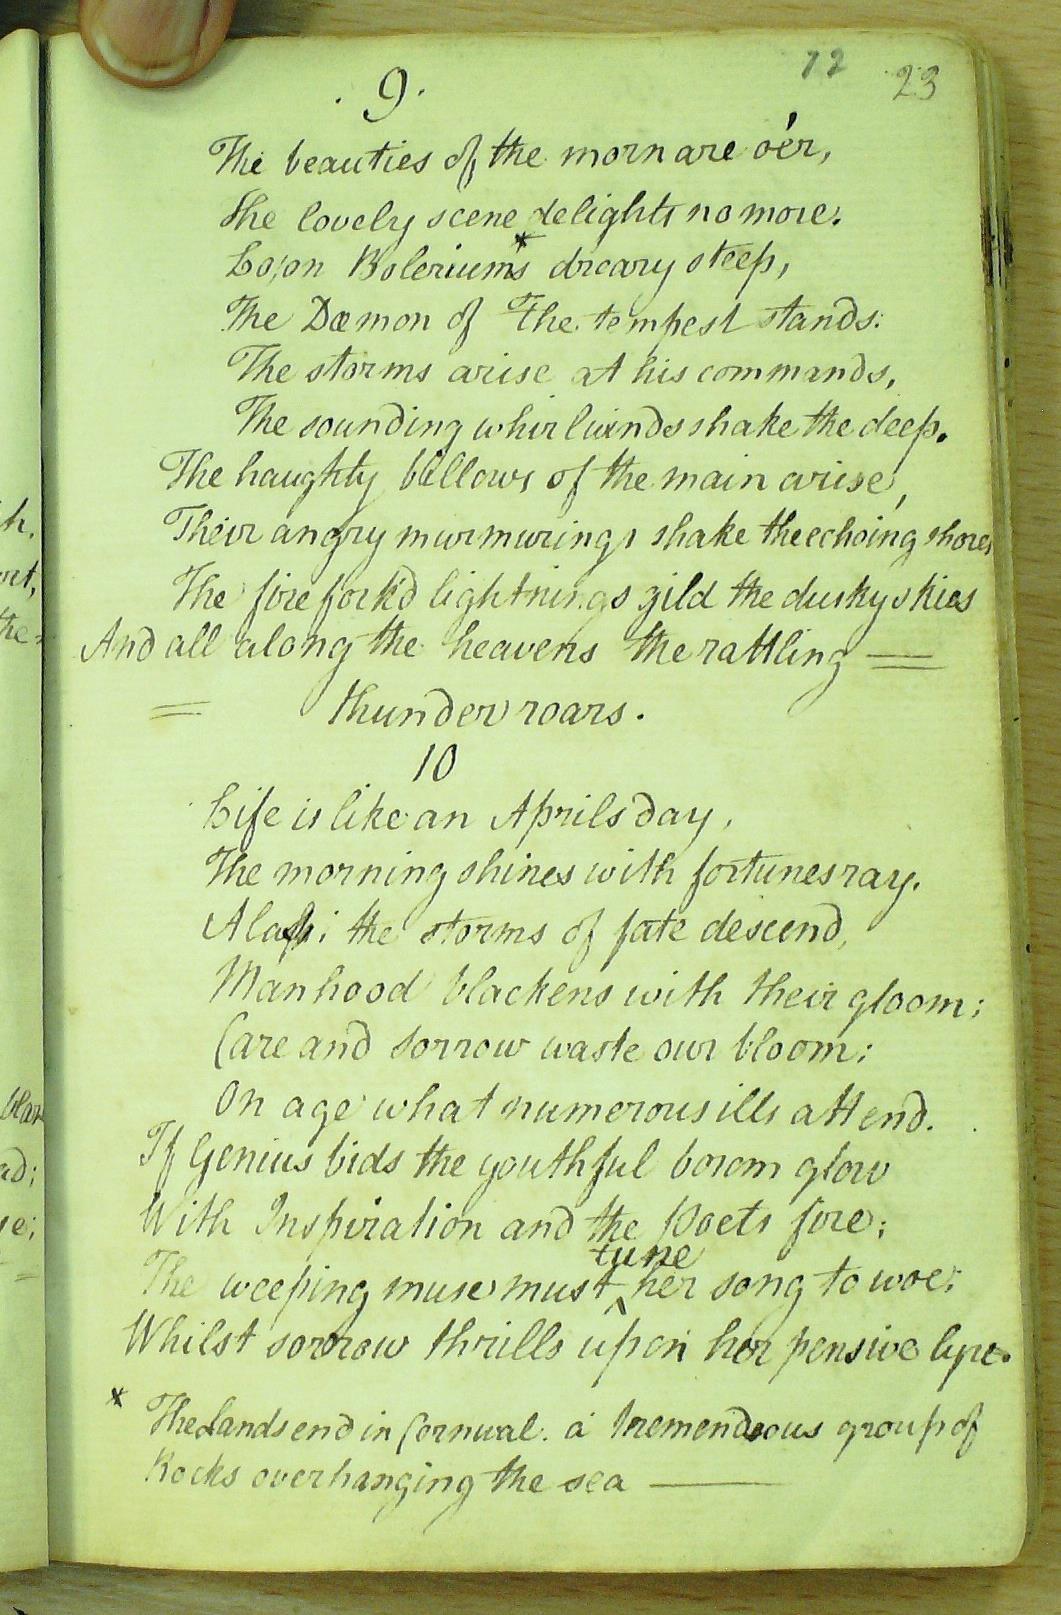 12 23
9.
The beauties of the morn are o'er,
The lovely scene delights no more.
Lo, on Bolerium's* dreary steep,
The Dæmon of The tempest stands.
The storms arise at his commands,
The sounding whirlwinds shake the deep.
The haughty billows of the main arise,
Their angry murmurings shake the echoing shores
The fire fork'd lightnings gild the dusky skies
And all along the heavens the rattling =
= thunder roars.
10
Life is like an Aprils day,
The morning shines with fortunes ray.
Alass; the storms of fate descend,
Manhood blackens with their gloom;
Care and sorrow waste our bloom;
On age what numerous ills attend.
If Genius bids the youthful bosom glow
With Inspiration and the Poets fire;
The weeping muse must ^tune her song to woe;
Whilst sorrow thrills upon her pensive lyre.
* The Lands end in Cornwal. a tremendeous group of
Rocks overhanging the sea —